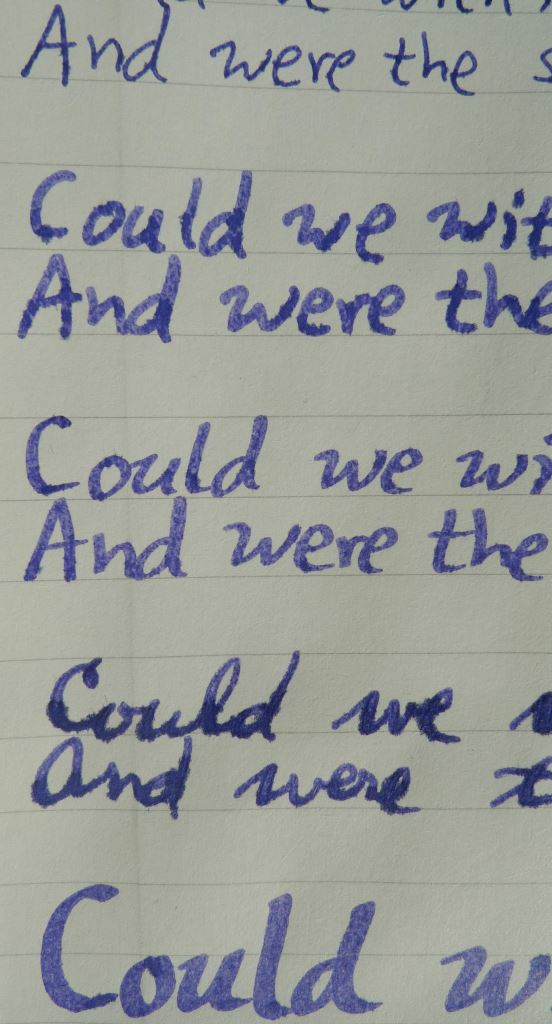 And were the
Could we
And were the
Could we
And were the
Could we
And were
Could